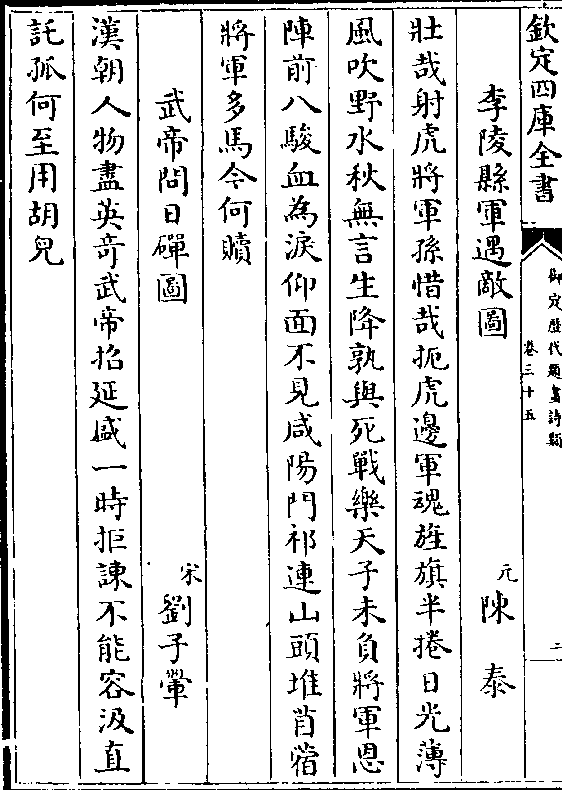 欽定四庫全書
御定歷代題畫詩類
卷三十五
二
李陵縣軍遇敵圖
元
陳泰
壯哉射虎將軍孫惜哉扼虎邊軍魂旌旗半捲日光薄
風吹野水秋無言生降孰與死戰樂天子未負將軍恩
陣前八駿血為淚仰面不見咸陽門祁連山頭堆苜蓿
將軍多馬今何贖
武帝問日磾圖
宋
劉子翬
漢朝人物盡英奇武帝招延盛一時拒諫不能容汲直
託孤何至用胡兒